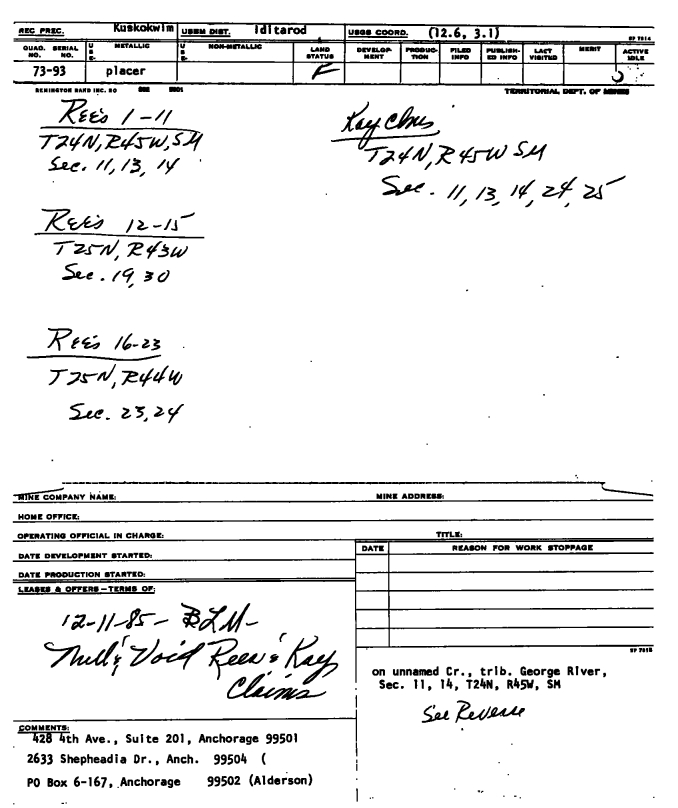 REC PREC. Kuskokwim USBM DIST. Iditarod USGS COORD. (12.6, 3.1)
RP 7014
QUAD. NO. SERIAL NO. USE- METALLIC USE- NON-METALLIC LAND STATUS DEVELOP-MENT PRODUC-TION FILED INFO PUBLISH-ED INFO LAST VISITED MERIT ACTIVE IDLE
73-93 placer F
REMINGTON RAND INC. TERRITORIAL DEPT. OF MINES
Ree's 1-11
T24N, R45W, SM
Sec. 11, 13, 14
Kay Clms
T24N, R45W SM
Sec. 11, 13, 14, 24, 25
Ree's 12-15
T25N, R43W
Sec. 19, 30
Ree's 16-23
T25N, R44W
Sec. 23, 24
MINE COMPANY NAME: MINE ADDRESS:
HOME OFFICE:
OPERATING OFFICIAL IN CHARGE: TITLE:
DATE DEVELOPMENT STARTED:
DATE REASON FOR WORK STOPPAGE
DATE PRODUCTION STARTED:
LEASES & OFFERS—TERMS OF:
12-11-85 - BLM -
Null & Void Rees & Kay
Claims
RP 7015
on unnamed Cr., trib. George River,
Sec. 11, 14, T24N, R45W, SM
See Reverse
COMMENTS:
428 4th Ave., Suite 201, Anchorage 99501
2633 Shepheadia Dr., Anch. 99504 (
PO Box 6-167, Anchorage 99502 (Alderson)